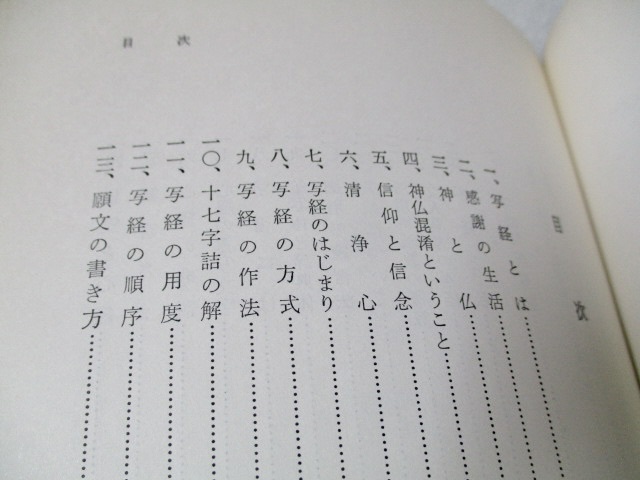 目次
目次
一、写経とは
二、感謝の生活
三、神と仏
四、神仏混淆ということ
五、信仰と信念
六、清浄心
七、写経のはじまり
八、写経の方式
九、写経の作法
一〇、十七字詰の解
一一、写経の用度
一二、写経の順序
一三、願文の書き方